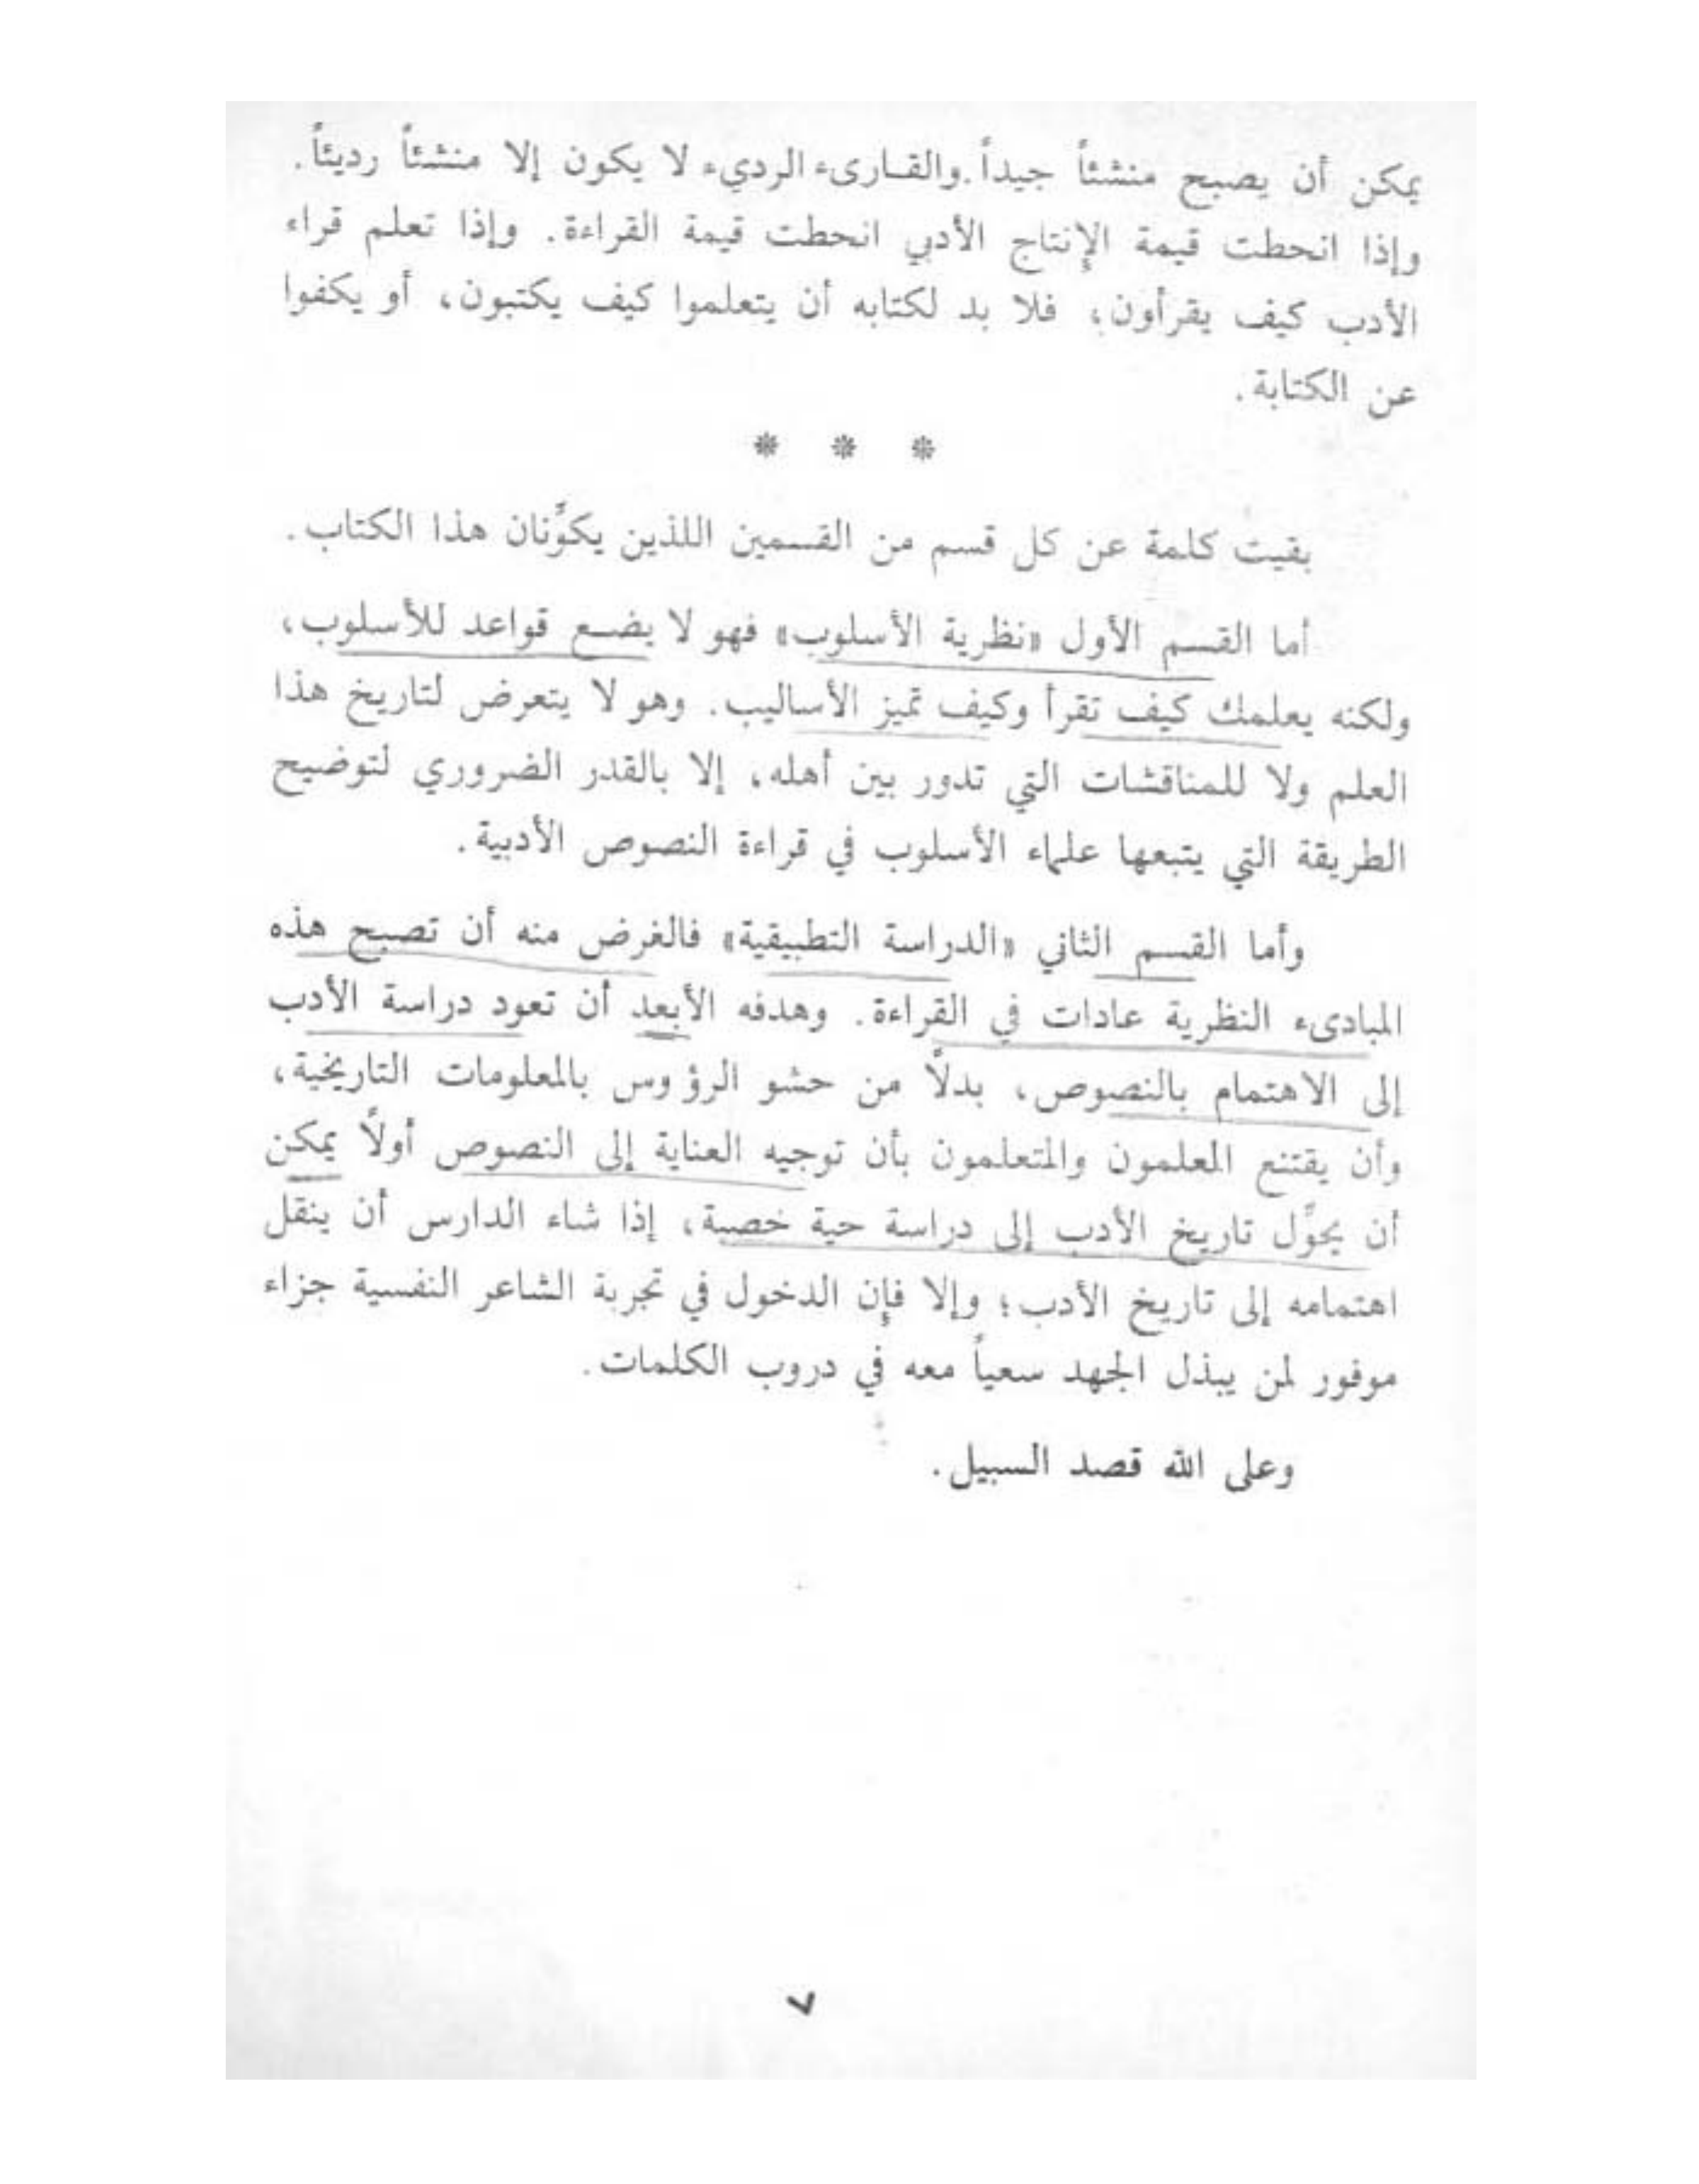 يمكن أن يصبح منشئاً جيداً. والقارىء الرديء لا يكون إلا منشئاً رديئاً.
وإذا انحطت قيمة الإنتاج الأدبي انحطت قيمة القراءة. وإذا تعلم قراء
الأدب كيف يقرأون، فلا بد لكتابه أن يتعلموا كيف يكتبون، أو يكفوا
عن الكتابة.
* * *
بقيت كلمة عن كل قسم من القسمين اللذين يكوِّنان هذا الكتاب.
أما القسم الأول «نظرية الأسلوب» فهو لا يضع قواعد للأسلوب،
ولكنه يعلمك كيف تقرأ وكيف تميز الأساليب. وهو لا يتعرض لتاريخ هذا
العلم ولا للمناقشات التي تدور بين أهله، إلا بالقدر الضروري لتوضيح
الطريقة التي يتبعها علماء الأسلوب في قراءة النصوص الأدبية.
وأما القسم الثاني «الدراسة التطبيقية» فالغرض منه أن تصبح هذه
المبادىء النظرية عادات في القراءة. وهدفه الأبعد أن تعود دراسة الأدب
إلى الاهتمام بالنصوص، بدلاً من حشو الرؤوس بالمعلومات التاريخية،
وأن يقتنع المعلمون والمتعلمون بأن توجيه العناية إلى النصوص أولاً يمكن
أن يحوِّل تاريخ الأدب إلى دراسة حية خصبة، إذا شاء الدارس أن ينقل
اهتمامه إلى تاريخ الأدب؛ وإلا فإن الدخول في تجربة الشاعر النفسية جزاء
موفور لمن يبذل الجهد سعياً معه في دروب الكلمات.
وعلى الله قصد السبيل.
٧